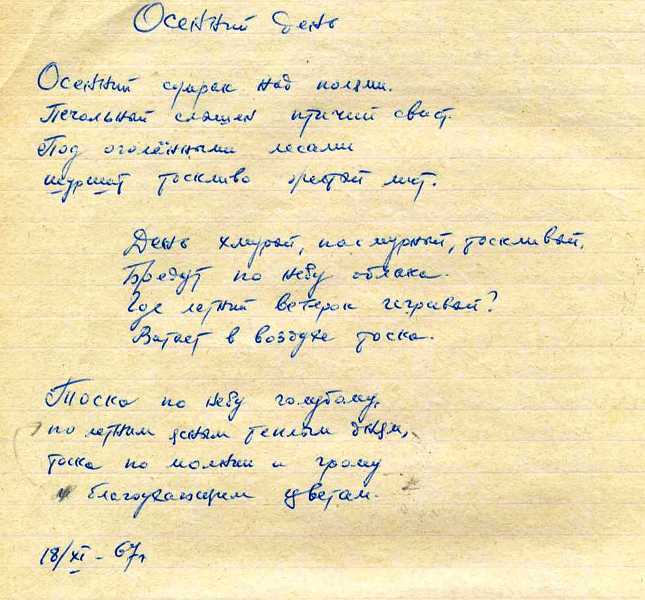 Осенний день
Осенний сумрак над полями.
Печальный слышен птичий свист.
Под оголёнными лесами
шуршит тоскливо прелый лист.
День хмурый, пасмурный, тоскливый.
Бредут по небу облака.
Где летний ветерок игривый?
Витает в воздухе тоска.
Тоска по небу голубому,
по летним ясным теплым дням,
тоска по молнии и грому
и благоухающим цветам.
18/XI – 67г